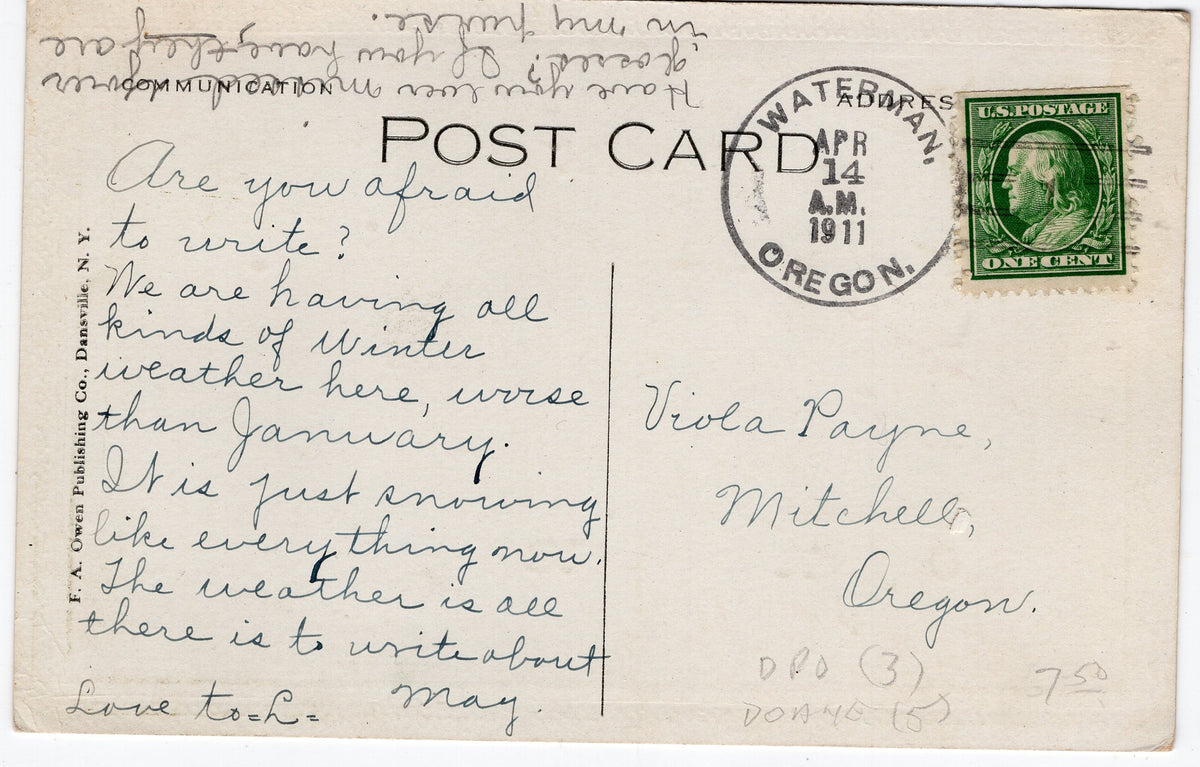 Have you ever missed your
gloves? If you have, they are
in my purse.
COMMUNICATION
ADDRES
POST CARD
WATERMAN,
APR
14
A.M.
1911
OREGON.
U.S. POSTAGE
ONE CENT
Are you afraid
to write?
We are having all
kinds of Winter
weather here, worse
than January.
It is just snowing
like everything now.
The weather is all
there is to write about
Love to =L= May.
F. A. Owen Publishing Co., Dansville, N. Y.
Viola Payne,
Mitchell,
Oregon.
DPO (3)
DOANE (5)
7 50